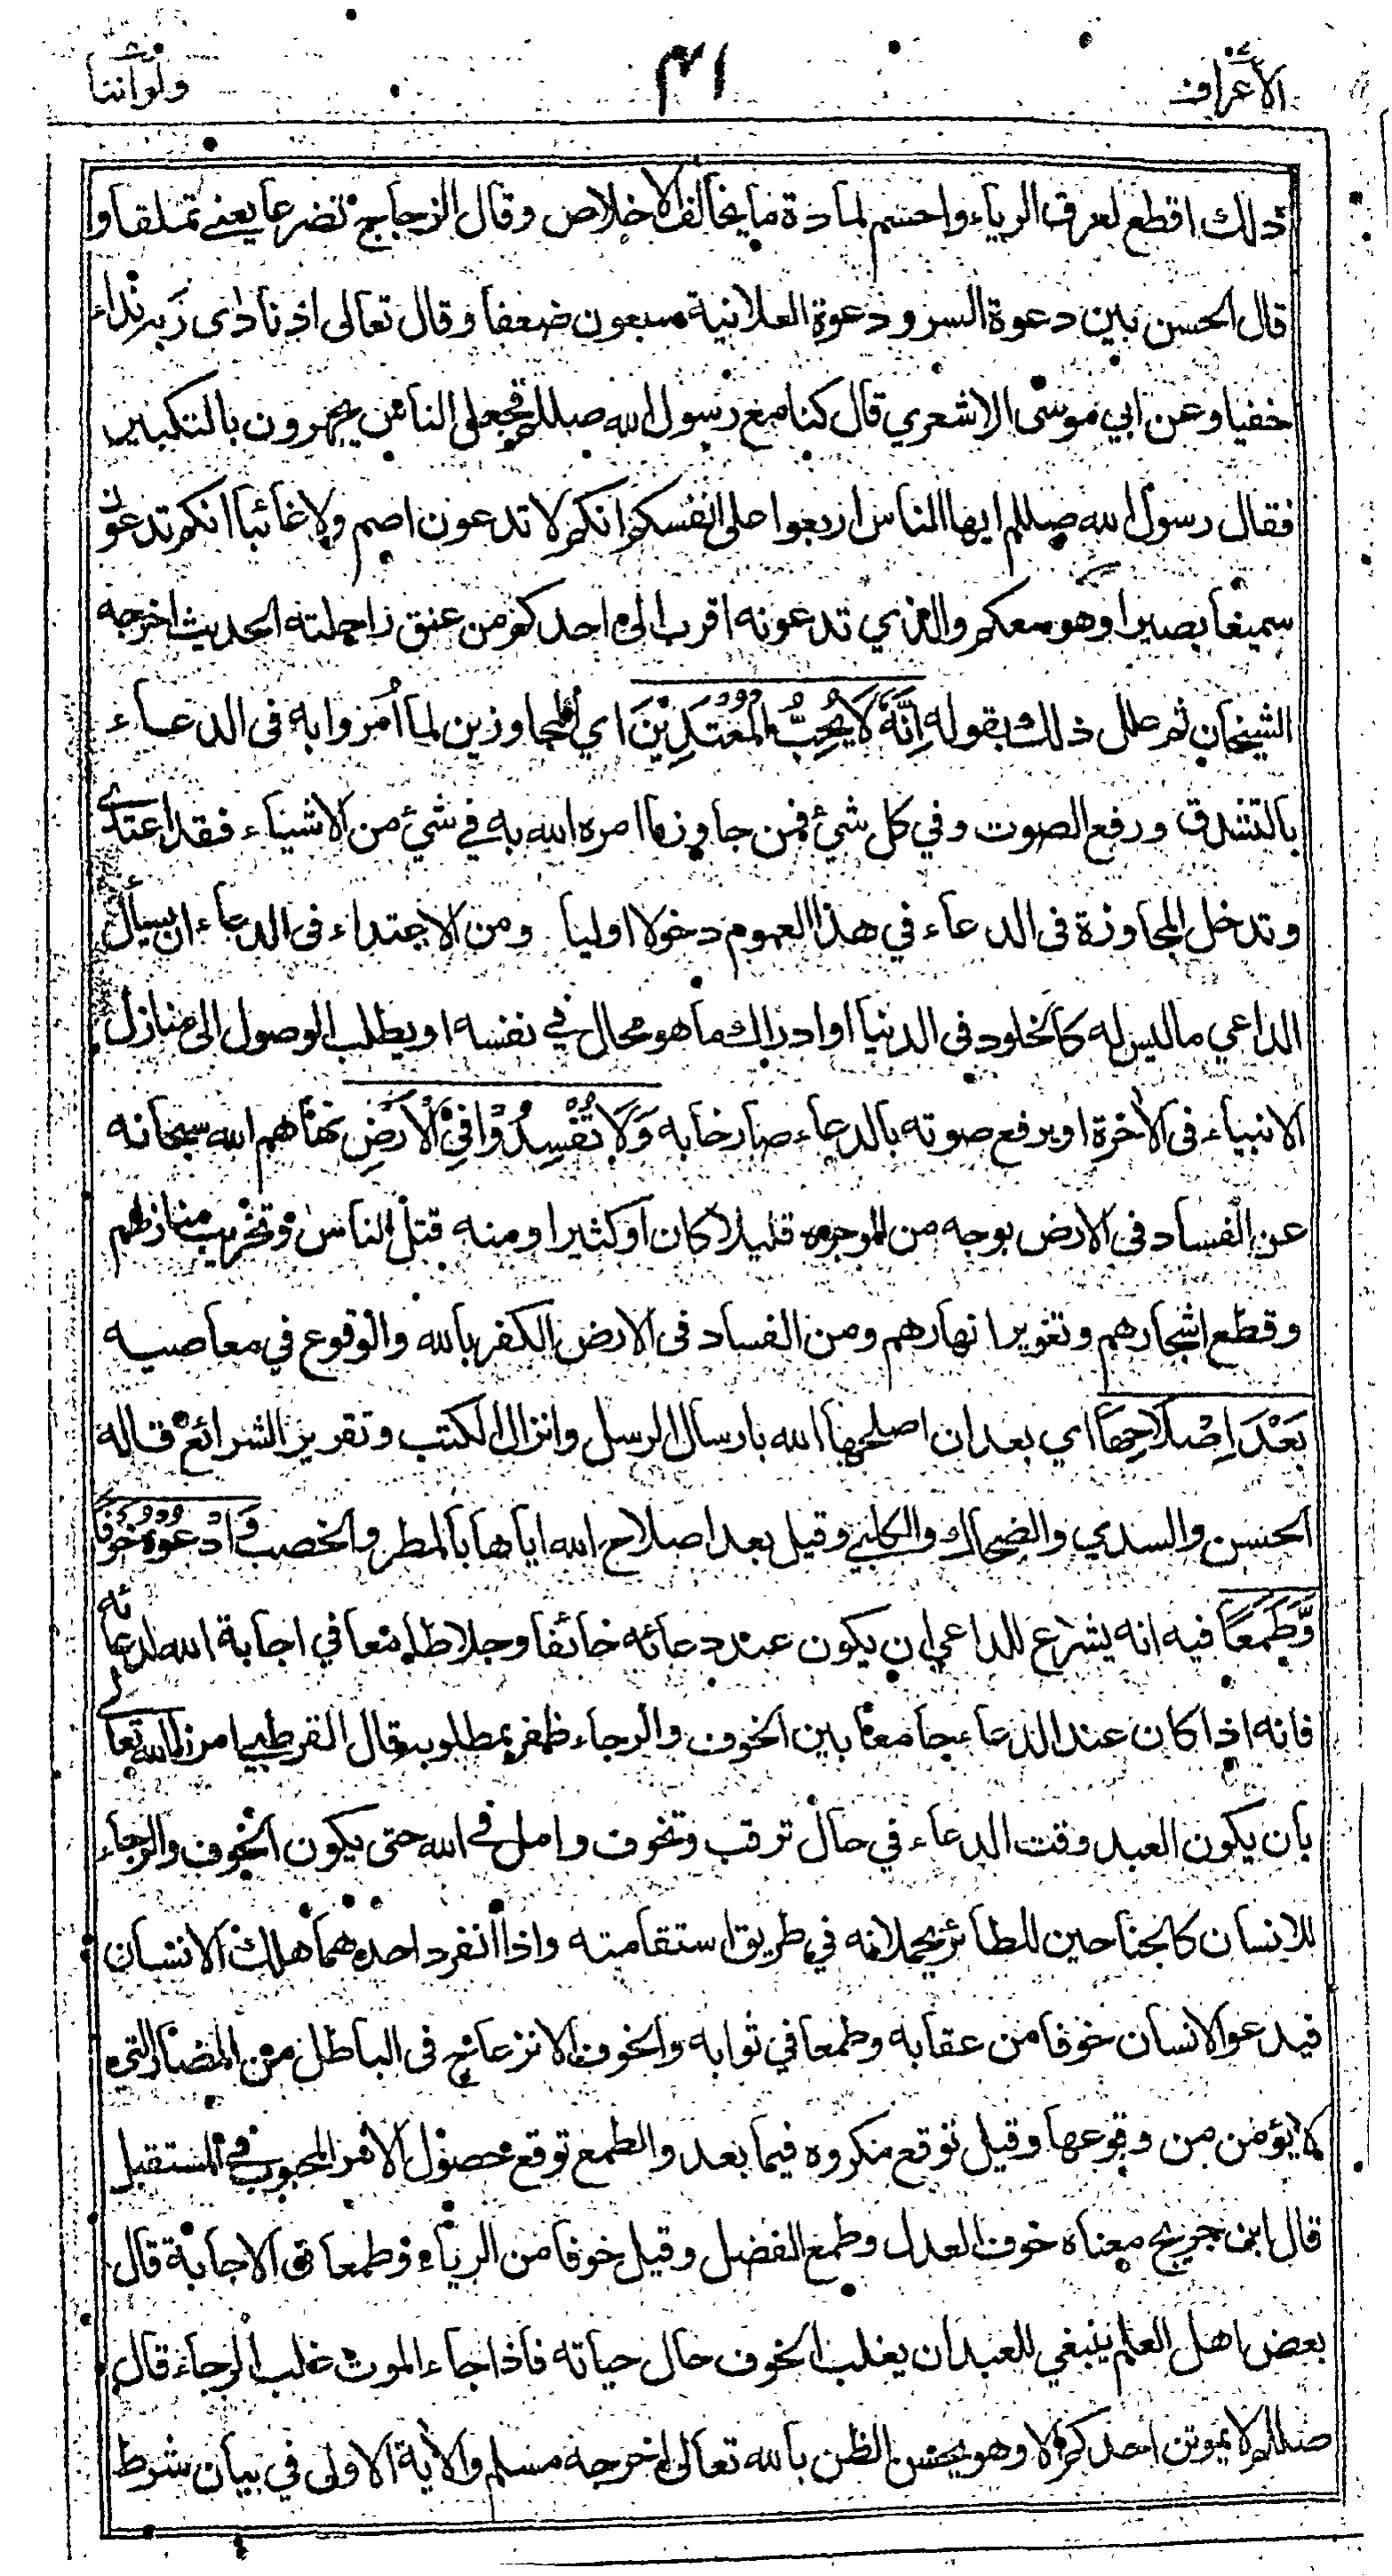 الأعراف ٣١ ولواننا
ذلك اقطع لعرق الرياء واحسم لمادة ما يخالف الاخلاص وقال الزجاج تضرعا يعنے تملقا و
قال الحسن بين دعوة السر ودعوة العلانية سبعون ضعفا وقال تعالى اذ نادى ربه نداء
خفيا وعن ابي موسى الاشعري قال كنا مع رسول الله صللم فجعل الناس يجهرون بالتكبير
فقال رسول الله صللم ايها الناس اربعوا على انفسكم انكم لا تدعون اصم ولا غائبا انكم تدعون
سميعا بصيرا وهو معكم والذي تدعونه اقرب الى احدكم من عنق راحلته الحديث اخرجه
الشيخان ثم علل ذلك بقوله اِنَّهٗ لَا يُحِبُّ الْمُعْتَدِيْنَ اي المجاوزين لما أمروا به فى الدعاء
بالتشدق ورفع الصوت وفي كل شئ فمن جاوز ما امره الله به في شئ من الاشياء فقد اعتدى
وتدخل المجاوزة فى الدعاء في هذا العموم دخولا اوليا ومن الاعتداء فى الدعاء ان يسأل
الداعي ما ليس له كالخلود فى الدنيا او ادراك ما هو محال في نفسه او يطلب الوصول الى منازل
الانبياء فى الأخرة او يرفع صوته بالدعاء صارخا به وَلَا تُفْسِدُوْا فِى الْاَرْضِ نهاهم الله سبحانه
عن الفساد فى الارض بوجه من الوجوه قليلا كان او كثيرا ومنه قتل الناس وتخريب منازلهم
وقطع اشجارهم وتغوير انهارهم ومن الفساد فى الارض الكفر بالله والوقوع في معاصيه
بَعْدَ اِصْلَاحِهَا اي بعد ان اصلحها الله بارسال الرسل وانزال الكتب وتقرير الشرائع قاله
الحسن والسدي والضحاك والكلبي وقيل بعد اصلاح الله اياها بالمطر والخصب وَادْعُوْهُ خَوْفًا
وَّطَمَعًا فيه انه يشرع للداعي ان يكون عند دعائه خائفا وجلا طامعا في اجابة الله لدعائه
فانه اذا كان عند الدعاء جامعا بين الخوف والرجاء ظفر بمطلوبه قال القرطبي امر الله تعالى
بان يكون العبد وقت الدعاء في حال ترقب وتخوف وامل فے الله حتى يكون الخوف والرجاء
للانسان كالجناحين للطائر يحملانه في طريق استقامته واذا انفرد احدهما هلك الانسان
فيدعو الانسان خوفا من عقابه وطمعا في ثوابه والخوف الانزعاج فى الباطن من المضار التي
لا يؤمن من وقوعها وقيل توقع مكروه فيما بعد والطمع توقع حصول الامر المحبوب في المستقبل
قال ابن جريج معناه خوف العدل وطمع الفضل وقيل خوفا من الرياء وطمعا فى الاجابة قال
بعض اهل العلم ينبغي للعبد ان يغلب الخوف حال حياته فاذا جاء الموت غلب الرجاء قال
صللم لا يموتن احدكم الا وهو يحسن الظن بالله تعالى اخرجه مسلم والأية الاولى في بيان شرط